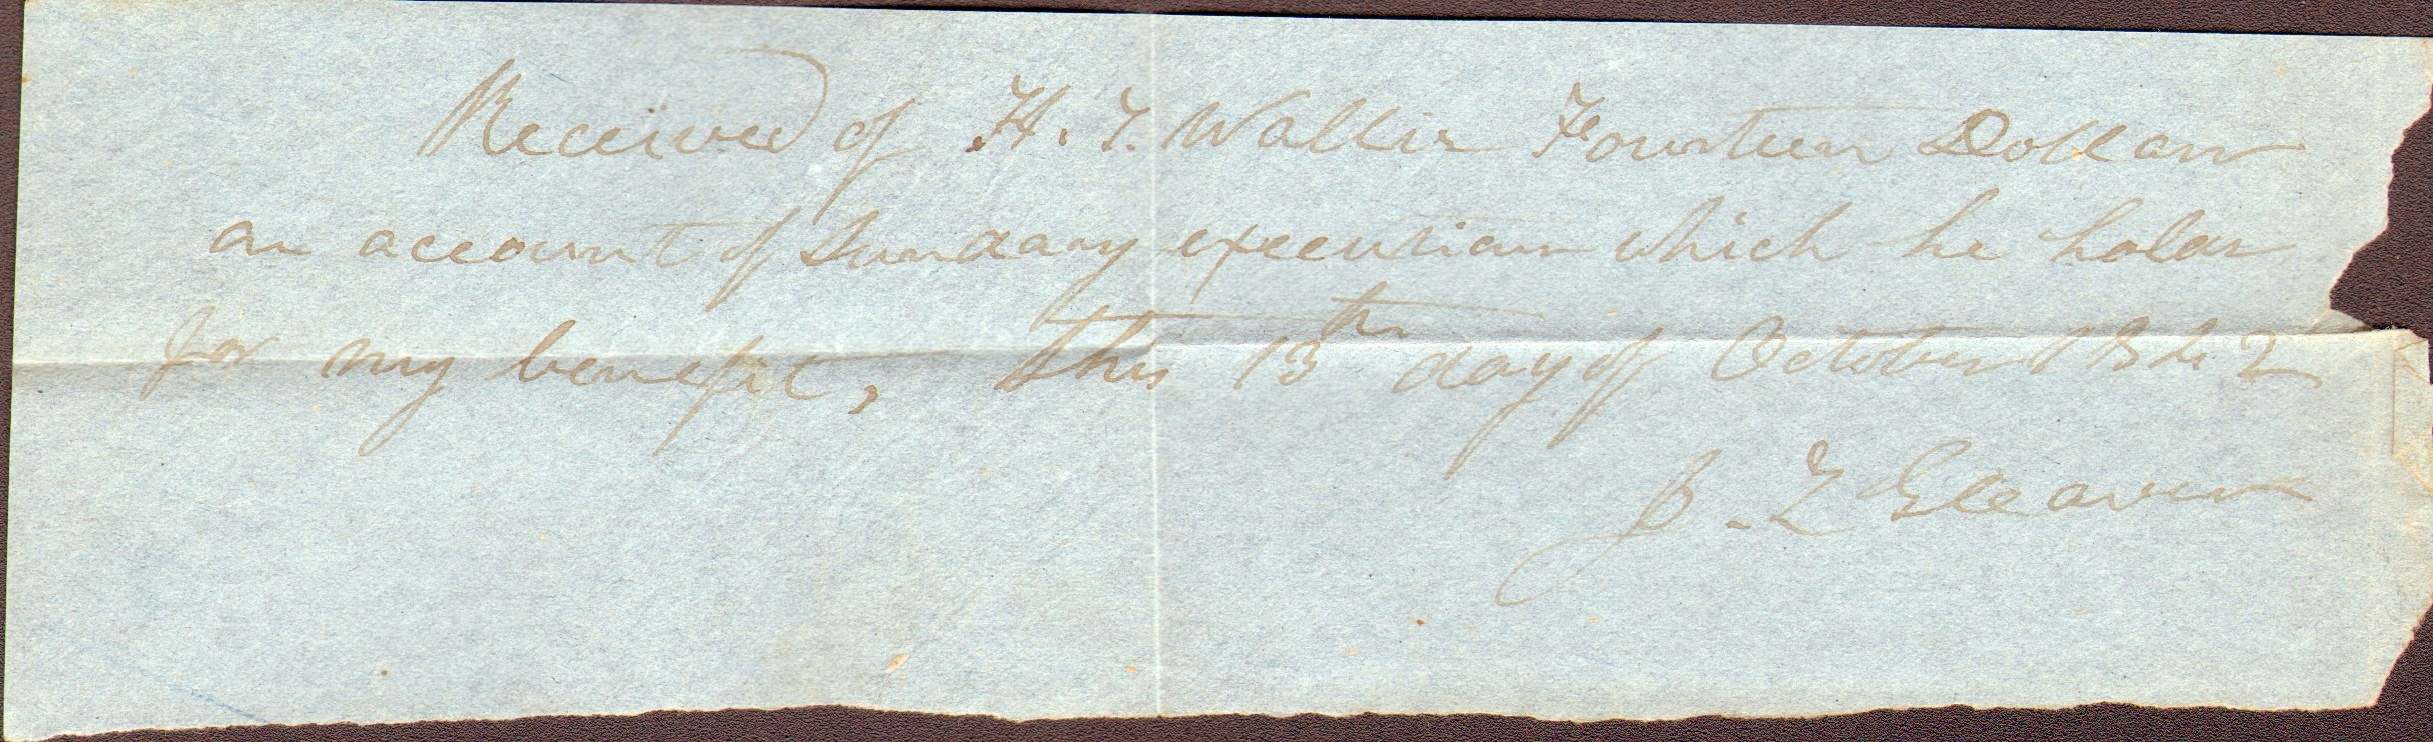 Received of H. T. Wallis Fourteen Dollars
on account of Sundary executions which he holds
for my benefit, this 13th day of October 1842
J. Z Gleaves